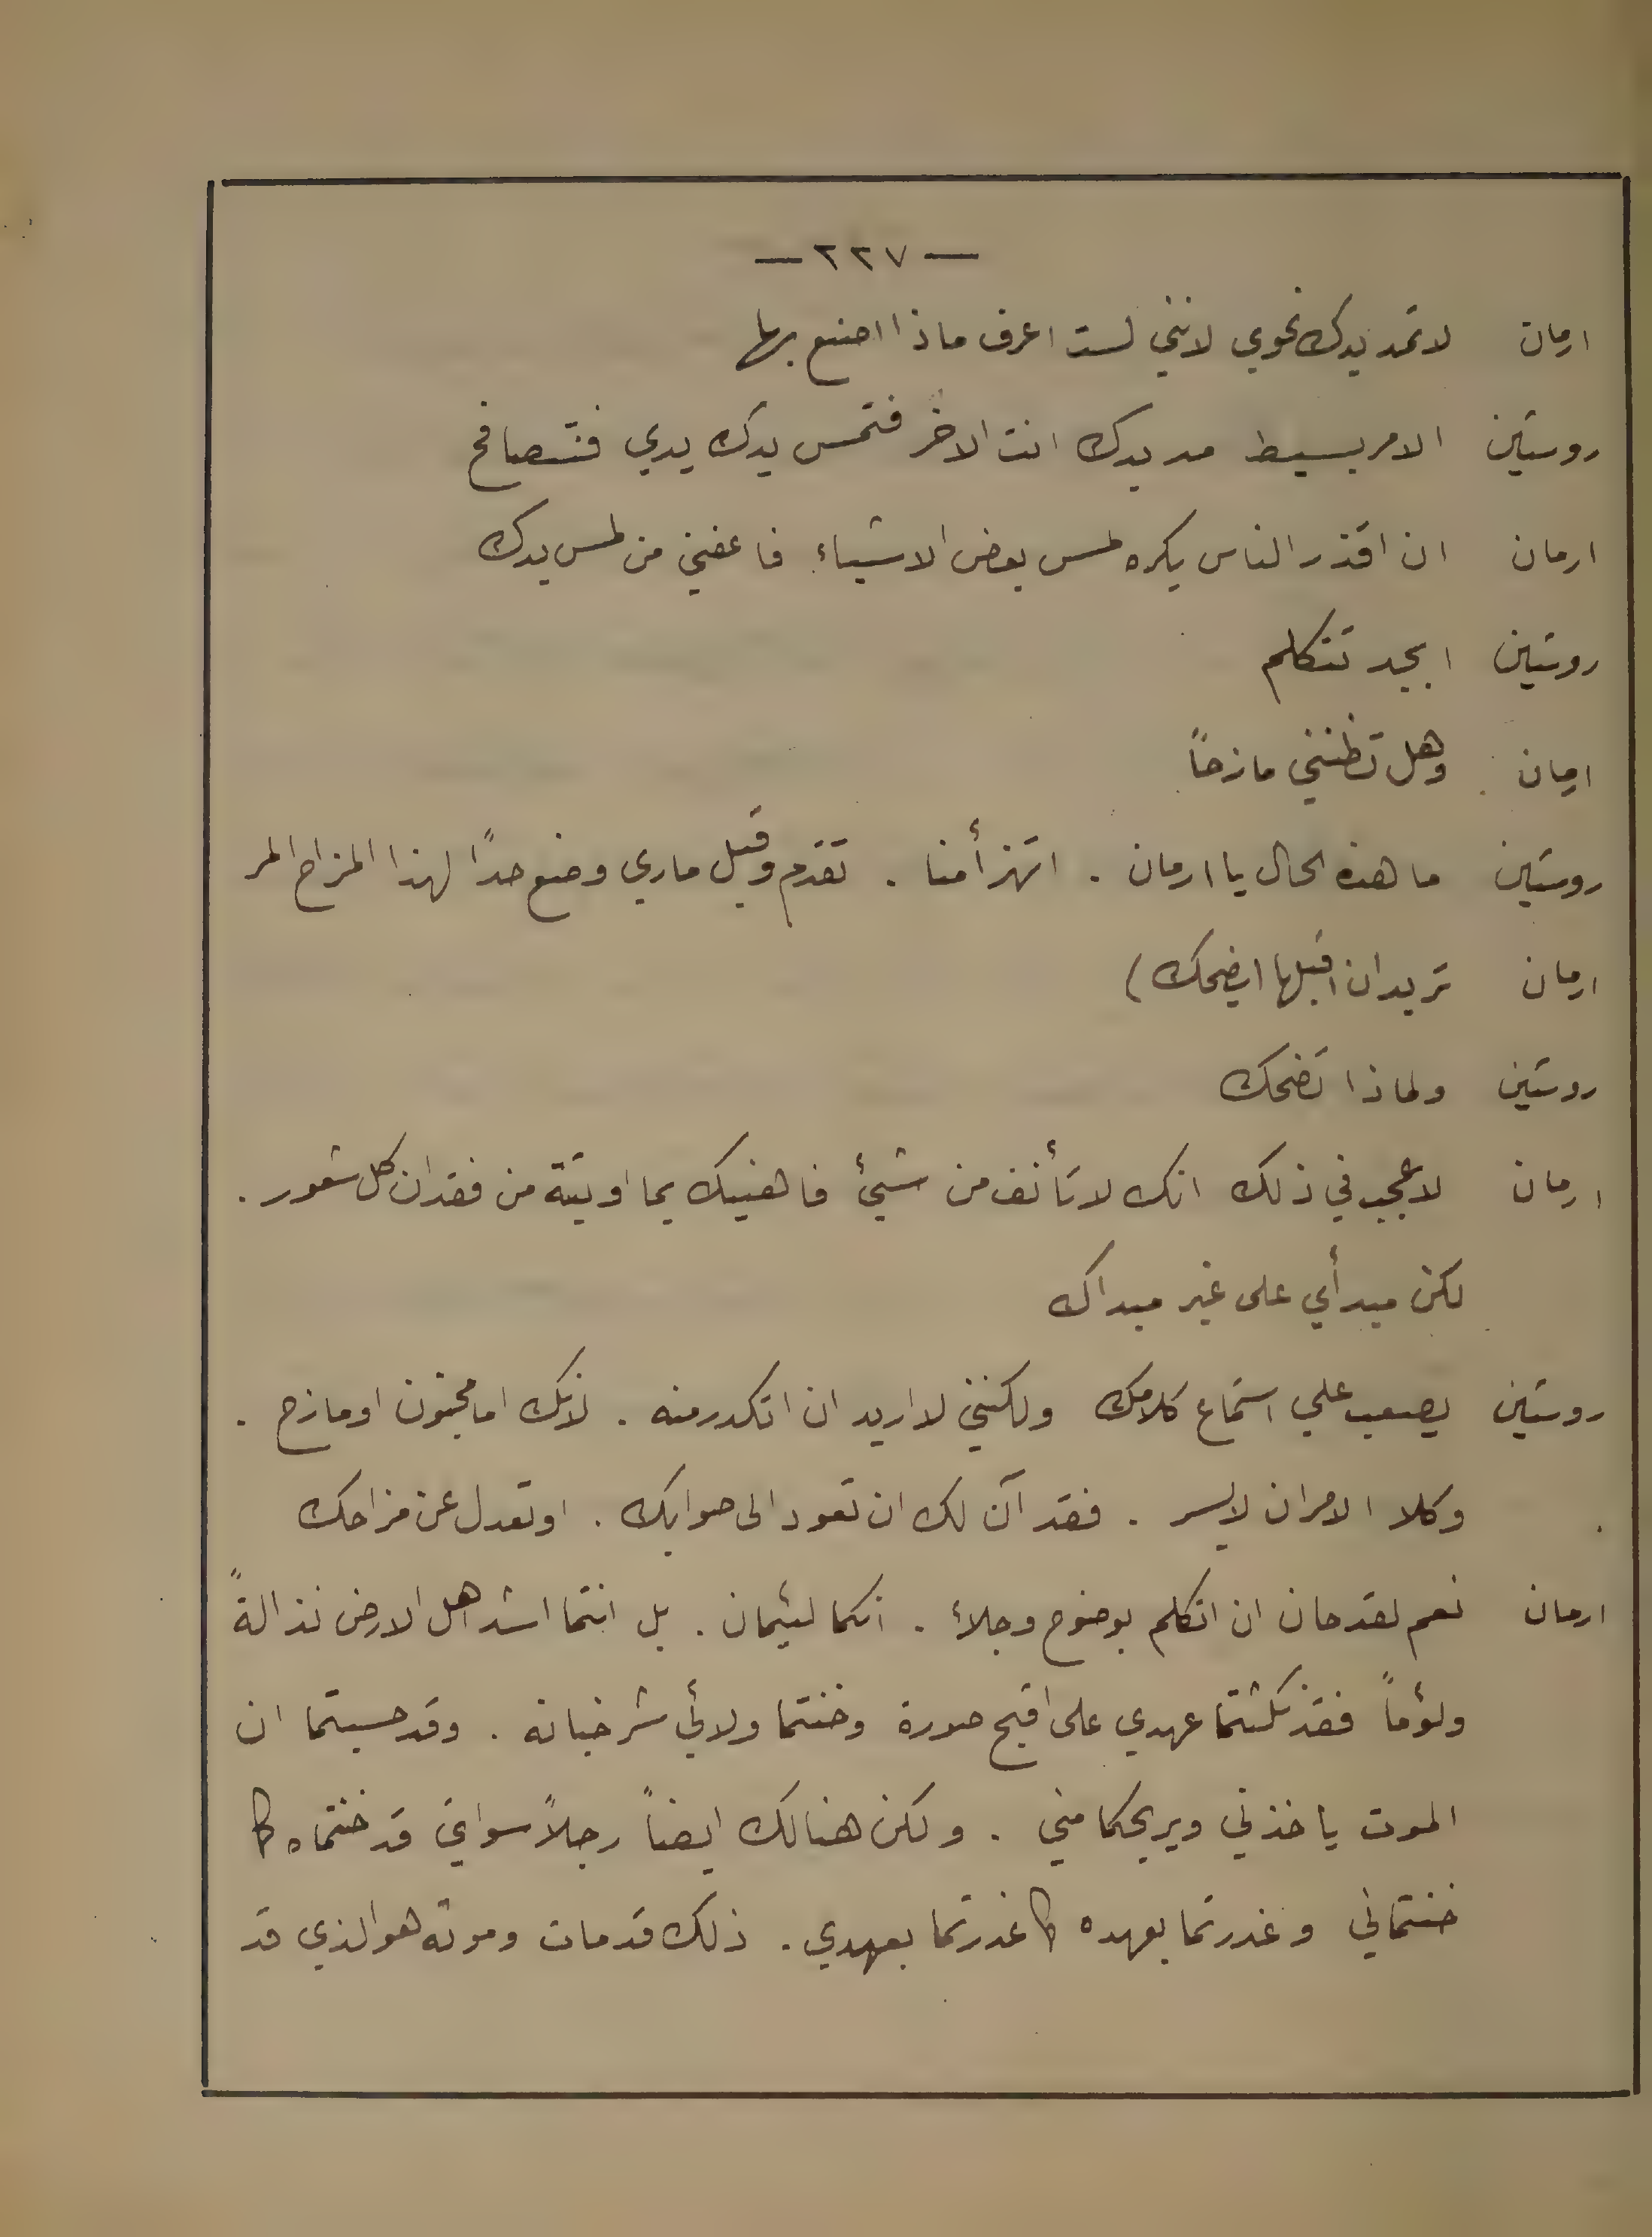 — ٢٢٧ —
ارمان لا تمد يدك نحوي لانني لست اعرف ماذا اصنع بها
روستين الامر بسيط مد يدك انت الاخر فتمس يدك يدي فنتصافح
ارمان ان اقذر الناس يكره لمس بعض الاشياء فاعفني من لمس يدك
روستين ابجد تتكلم
ارمان وهل تظنني مازحاً
روستين ما هذه الحال يا ارمان . اتهزأ منا . تقدم وقبل ماري وضع حداً لهذا المزاح المر
ارمان تريد ان اقبلها (يضحك)
روستين ولماذا تضحك
ارمان لا عجب في ذلك انك لا تأنف من شيئ فاهنيك بما اوتيته من فقدان كل شعور .
لكن مبدأي على غير مبداك
روستين يصعب علي استماع كلامك ولكنني لا اريد ان اتكدر منه . لانك اما مجنون او مازح .
وكلا الامران لا يسر . فقد آن لك ان تعود الى صوابك . او تعدل عن مزاحك
ارمان نعم لقد حان ان اتكلم بوضوح وجلاء . انكما لئيمان . بل انتما اشد اهل الارض نذالةً
ولؤماً فقد نكثتما عهدي على اقبح صورة وخنتما ولائي شر خيانه . وقد حسبتما ان
الموت ياخذني ويريحكما مني . ولكن هنالك ايضاً رجلاً سواي قد خنتماه كما
خنتماني وغدرتما بعهده كما غدرتما بعهدي . ذلك قد مات وموته هو الذي قد